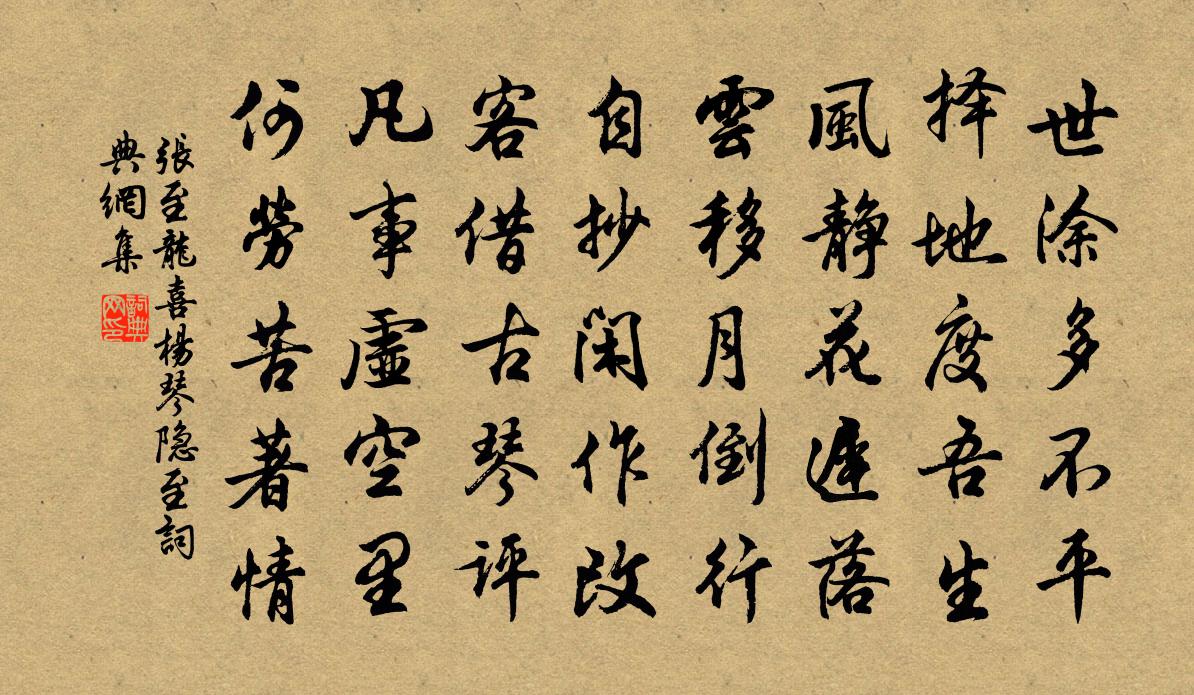 世涂多不平
择地度吾生
風静花遲落
雲移月倒行
自抄閑作改
客借古琴评
凡事虛空里
何勞苦著情
張至龍喜楊琴隐至詞
典網集
詞典
网印